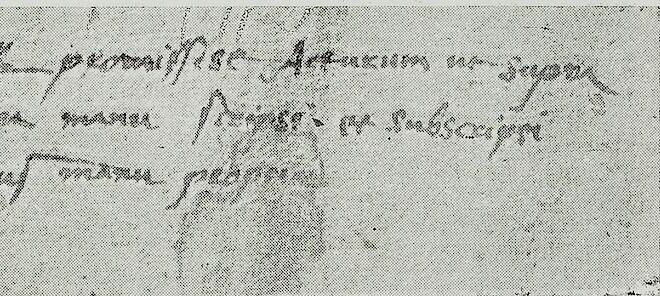 promissise Acturum ut supra
manu scripsi et subscripsi
manu propria